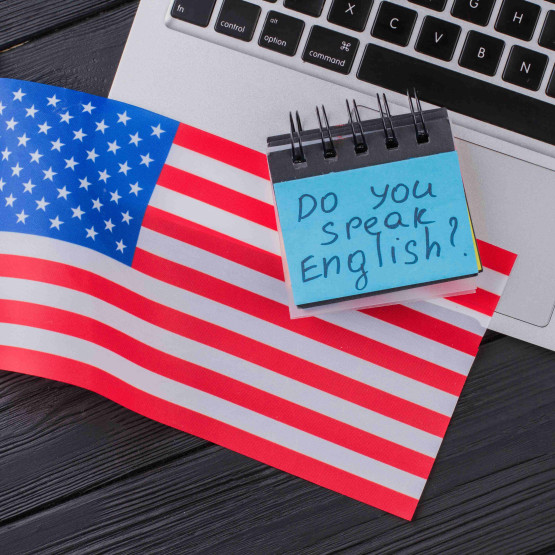 fn
control
alt
option
command
⌘
X
C
V
B
N
G
H
Do you
speak
English?